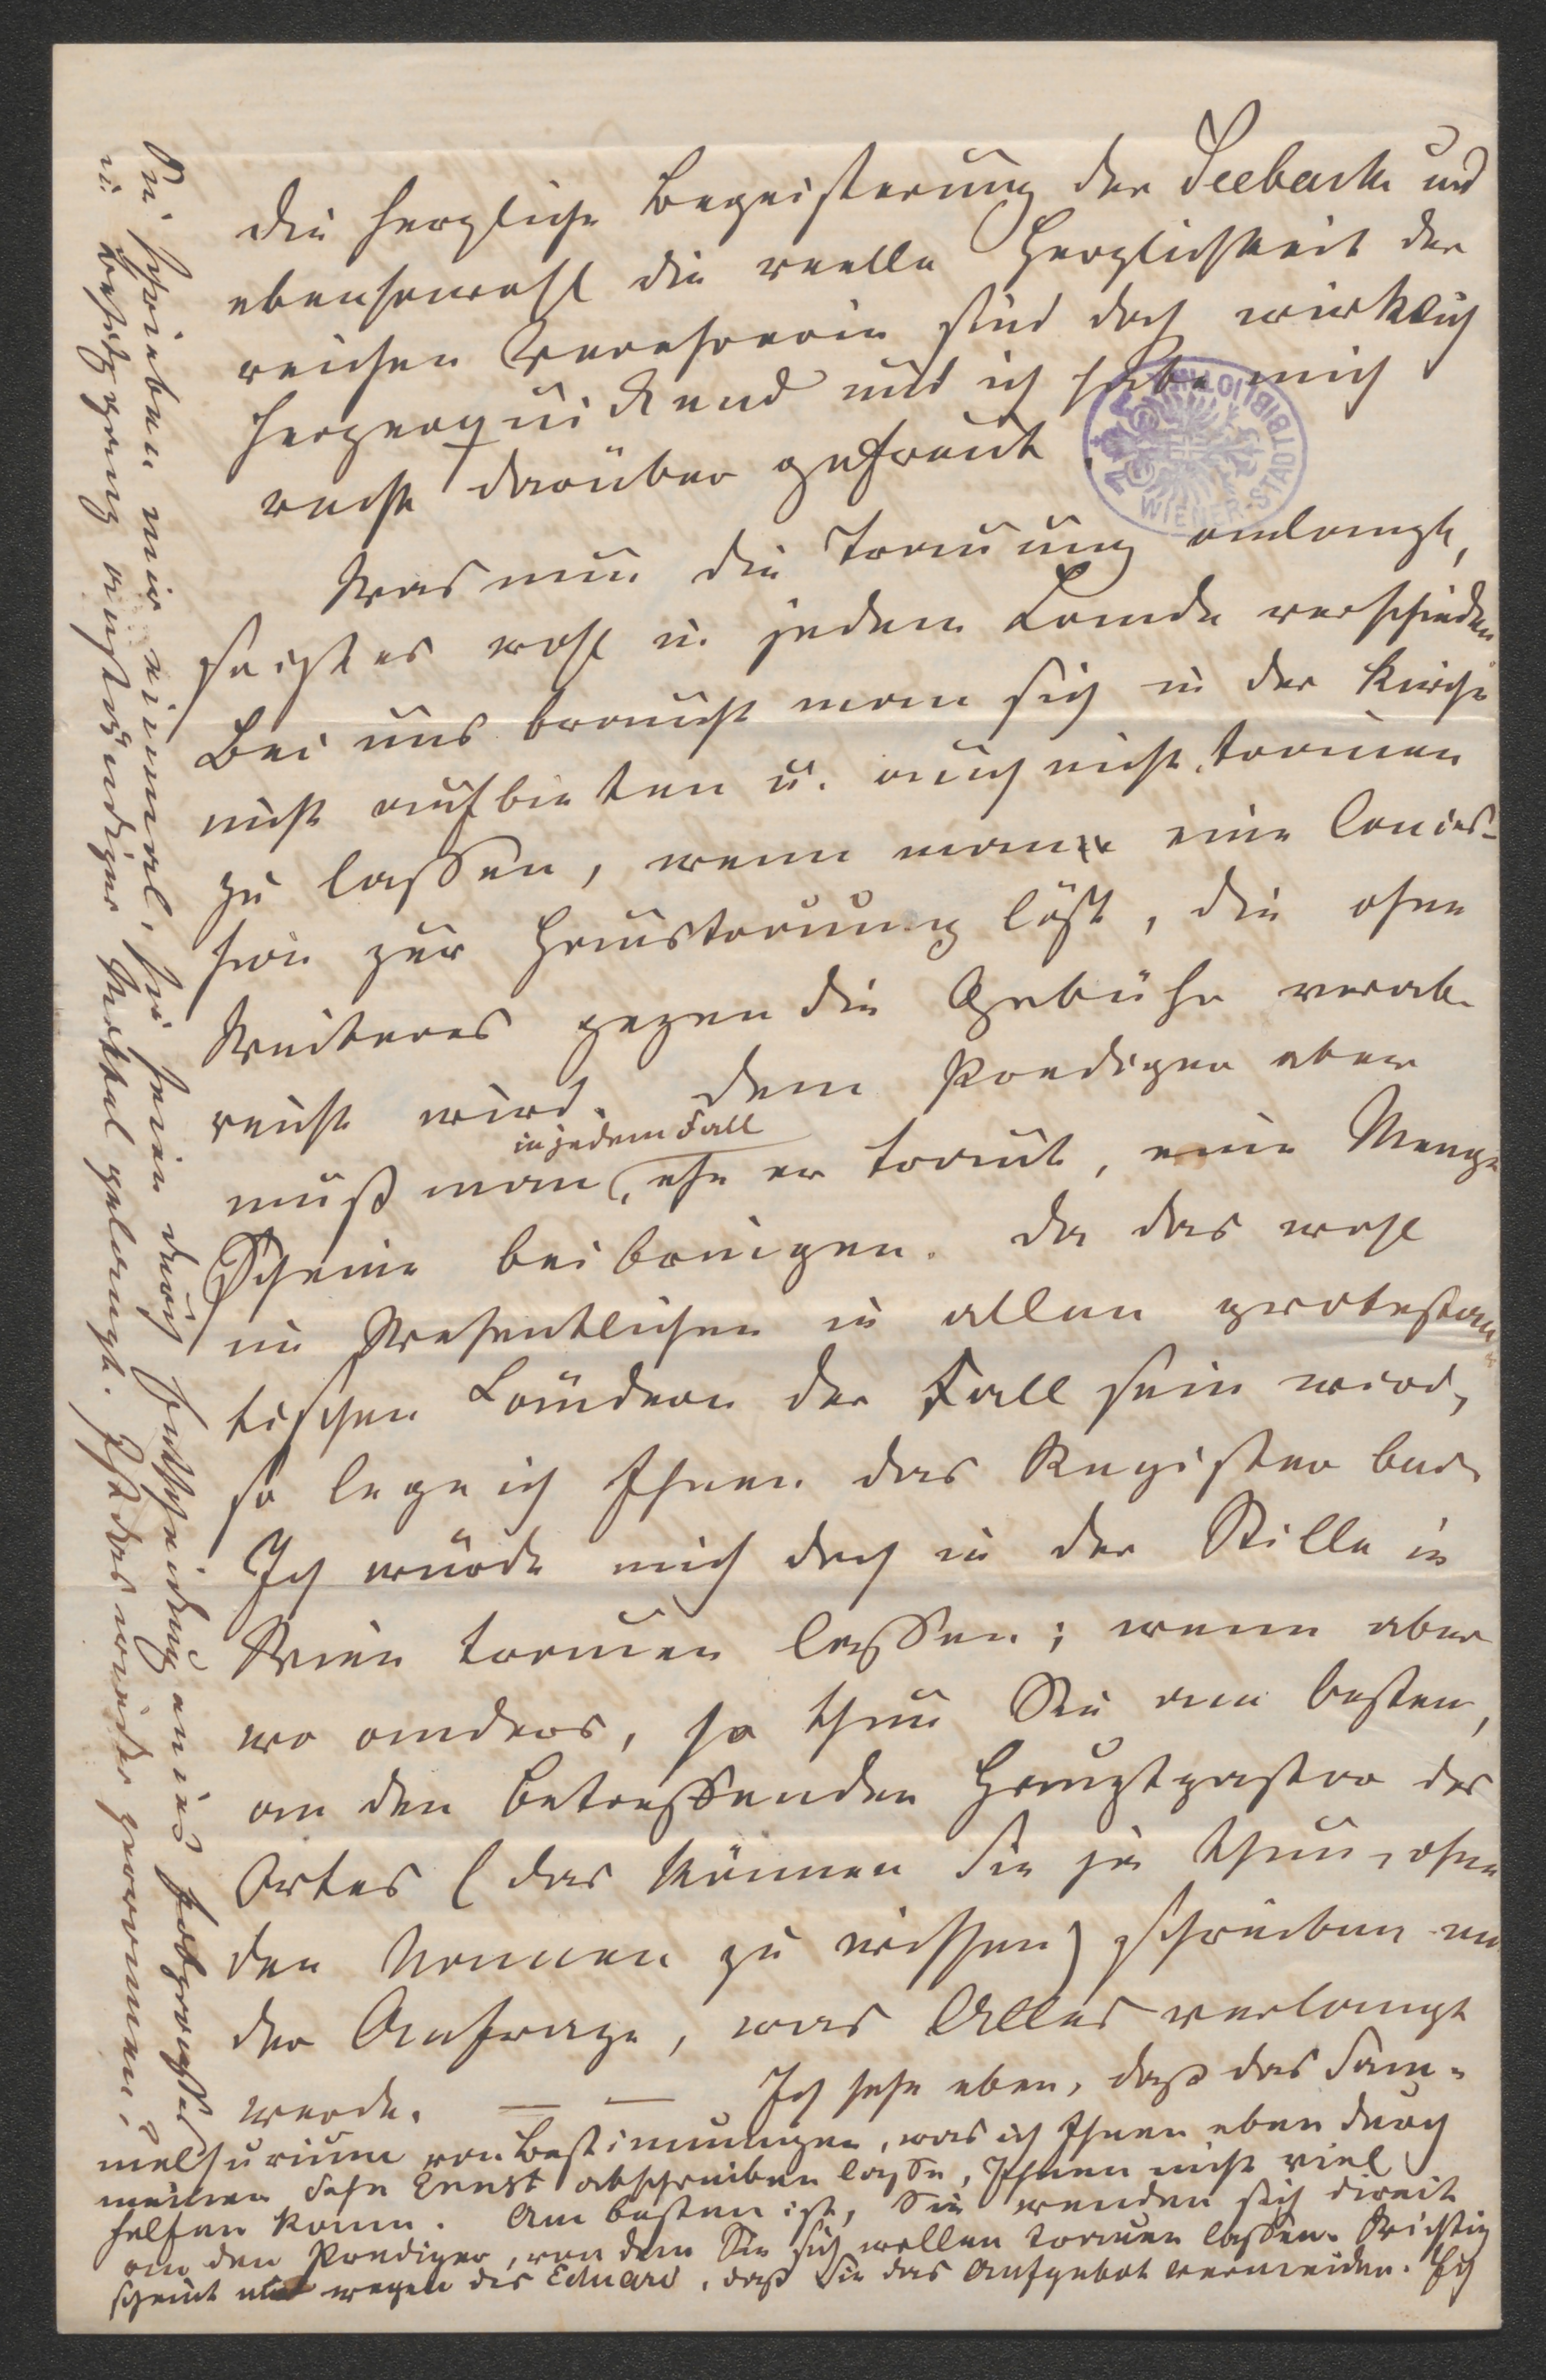 die herzliche Begeisterung der Seebach und
ebensowohl die reelle Herzlichkeit der
reichen Verehrerin sind doch wirklich
herzerquickend und ich habe mich
recht darüber gefreut.
Was nun die Trauung anlangt,
so ist es wohl in jedem Lande verschieden
Bei uns braucht man sich in der Kirche
nicht aufbieten u. auch nicht trauen
zu lassen, wenn man eine Conces-
sion zur Haustrauung löst, die ohne
Weiteres gegen die Gebühr verab-
reicht wird. Dem Prediger aber
in jedem Fall
muß man, ehe er traut, eine Menge
Scheine beibringen. Da das wohl
im Wesentlichen in allen protestan-
tischen Ländern der Fall sein wird,
so lege ich Ihnen das Register bei.
Ich würde mich doch in der Stille in
Wien trauen lassen; wenn aber
wo anders, so thun Sie am besten,
an den betreffenden Hauptpastor des
Ortes (das können Sie ja thun, ohne
den Namen zu wissen) schreiben mit
der Anfrage, was Alles verlangt
werde. — — Ich sehe eben, daß das Sam-
melsurium von Bestimmungen, was ich Ihnen eben durch
meinen Sohn Ernst abschreiben lasse, Ihnen nicht viel
helfen kann. Am besten ist, Sie wenden sich direct
an den Prediger, von dem Sie sich wollen trauen lassen. Wichtig
scheint mir wegen des Eduard, daß Sie das Aufgebot vermeiden. Ich
Sie schrieben mir einmal, sie seien durch Entscheidung eines
in Besitz ganz anständiger Mittel gelangt. Ist das wieder zerronnen?
WIENER STADTBIBLIOTHEK